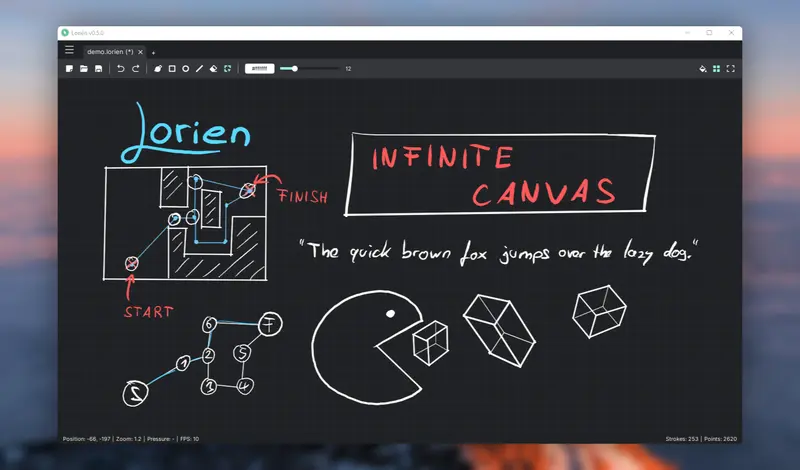 Lorien v0.5.0
demo.lorien (*)
#ffffff
12
Lorien
INFINITE
CANVAS
FINISH
"The quick brown fox jumps over the lazy dog."
START
6
F
1
2
5
S
3
4
Position: -66, -197 | Zoom: 1.2 | Pressure: - | FPS: 10
Strokes: 253 | Points: 2620